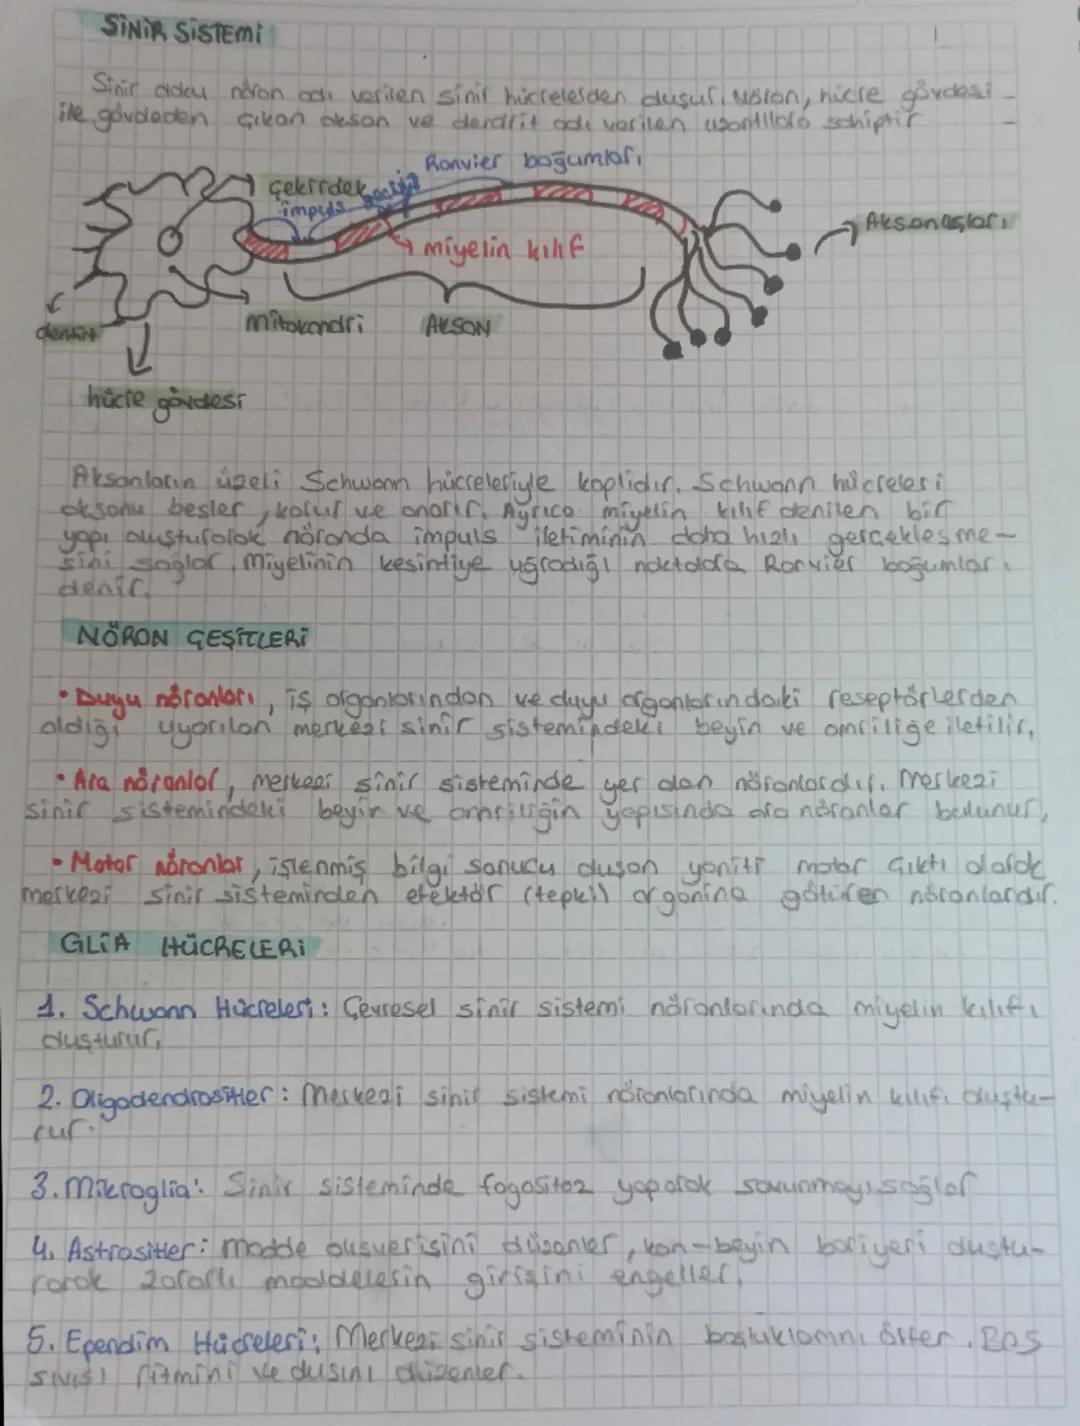 SİNİR SİSTEMİ
Sinir ağları nöron adı verilen sinir hücrelerinden oluşur. Nöron, hücre gövdesi
ile gövdeden çıkan akson ve dendrit adı verilen uzantılara sahiptir
Ranvier boğumları
çekirdek
impuls geçişi
Aksonuçları
miyelin kılıf
dentrit
mitokondri
AKSON
hücre gövdesi
Aksonların üzeri Schwann hücreleriyle kaplıdır. Schwann hücreleri
aksonu besler, korur ve onarır. Ayrıca miyelin kılıf denilen bir
yapı oluşturarak nöronda impuls iletiminin daha hızlı gerçekleşme-
sini sağlar. Miyelinin kesintiye uğradığı noktalara Ranvier boğumları
denir.
NÖRON ÇEŞİTLERİ
• Duyu nöronları, iş organlarından ve duyu organlarındaki reseptörlerden
aldığı uyarıları merkezi sinir sistemindeki beyin ve omiriliğe iletilir.
• Ara nöronlar, merkezi sinir sisteminde yer alan nöronlardır. Merkezi
sinir sistemindeki beyin ve omiriliğin yapısında ara nöronlar bulunur,
• Motor nöronlar, işlenmiş bilgi sonucu oluşan yanıtı motor çıktı olarak
merkezi sinir sisteminden efektör (tepki) organına götüren nöronlardır.
GLİA HÜCRELERİ
1. Schwann Hücreleri: Çevresel sinir sistemi nöronlarında miyelin kılıfı
oluşturur,
2. Oligodendrositler: Merkezi sinir sistemi nöronlarında miyelin kılıfı oluştu-
rur.
3. Mikroglia: Sinir sisteminde fagositoz yaparak savunmayı sağlar
4. Astrositler: Madde alışverişini düzenler, kan-beyin bariyeri oluştu-
rarak zararlı maddelerin girişini engeller,
5. Ependim Hücreleri: Merkezi sinir sisteminin boşluklarını örter. BOS
sıvısı ritmini ve akışını düzenler.